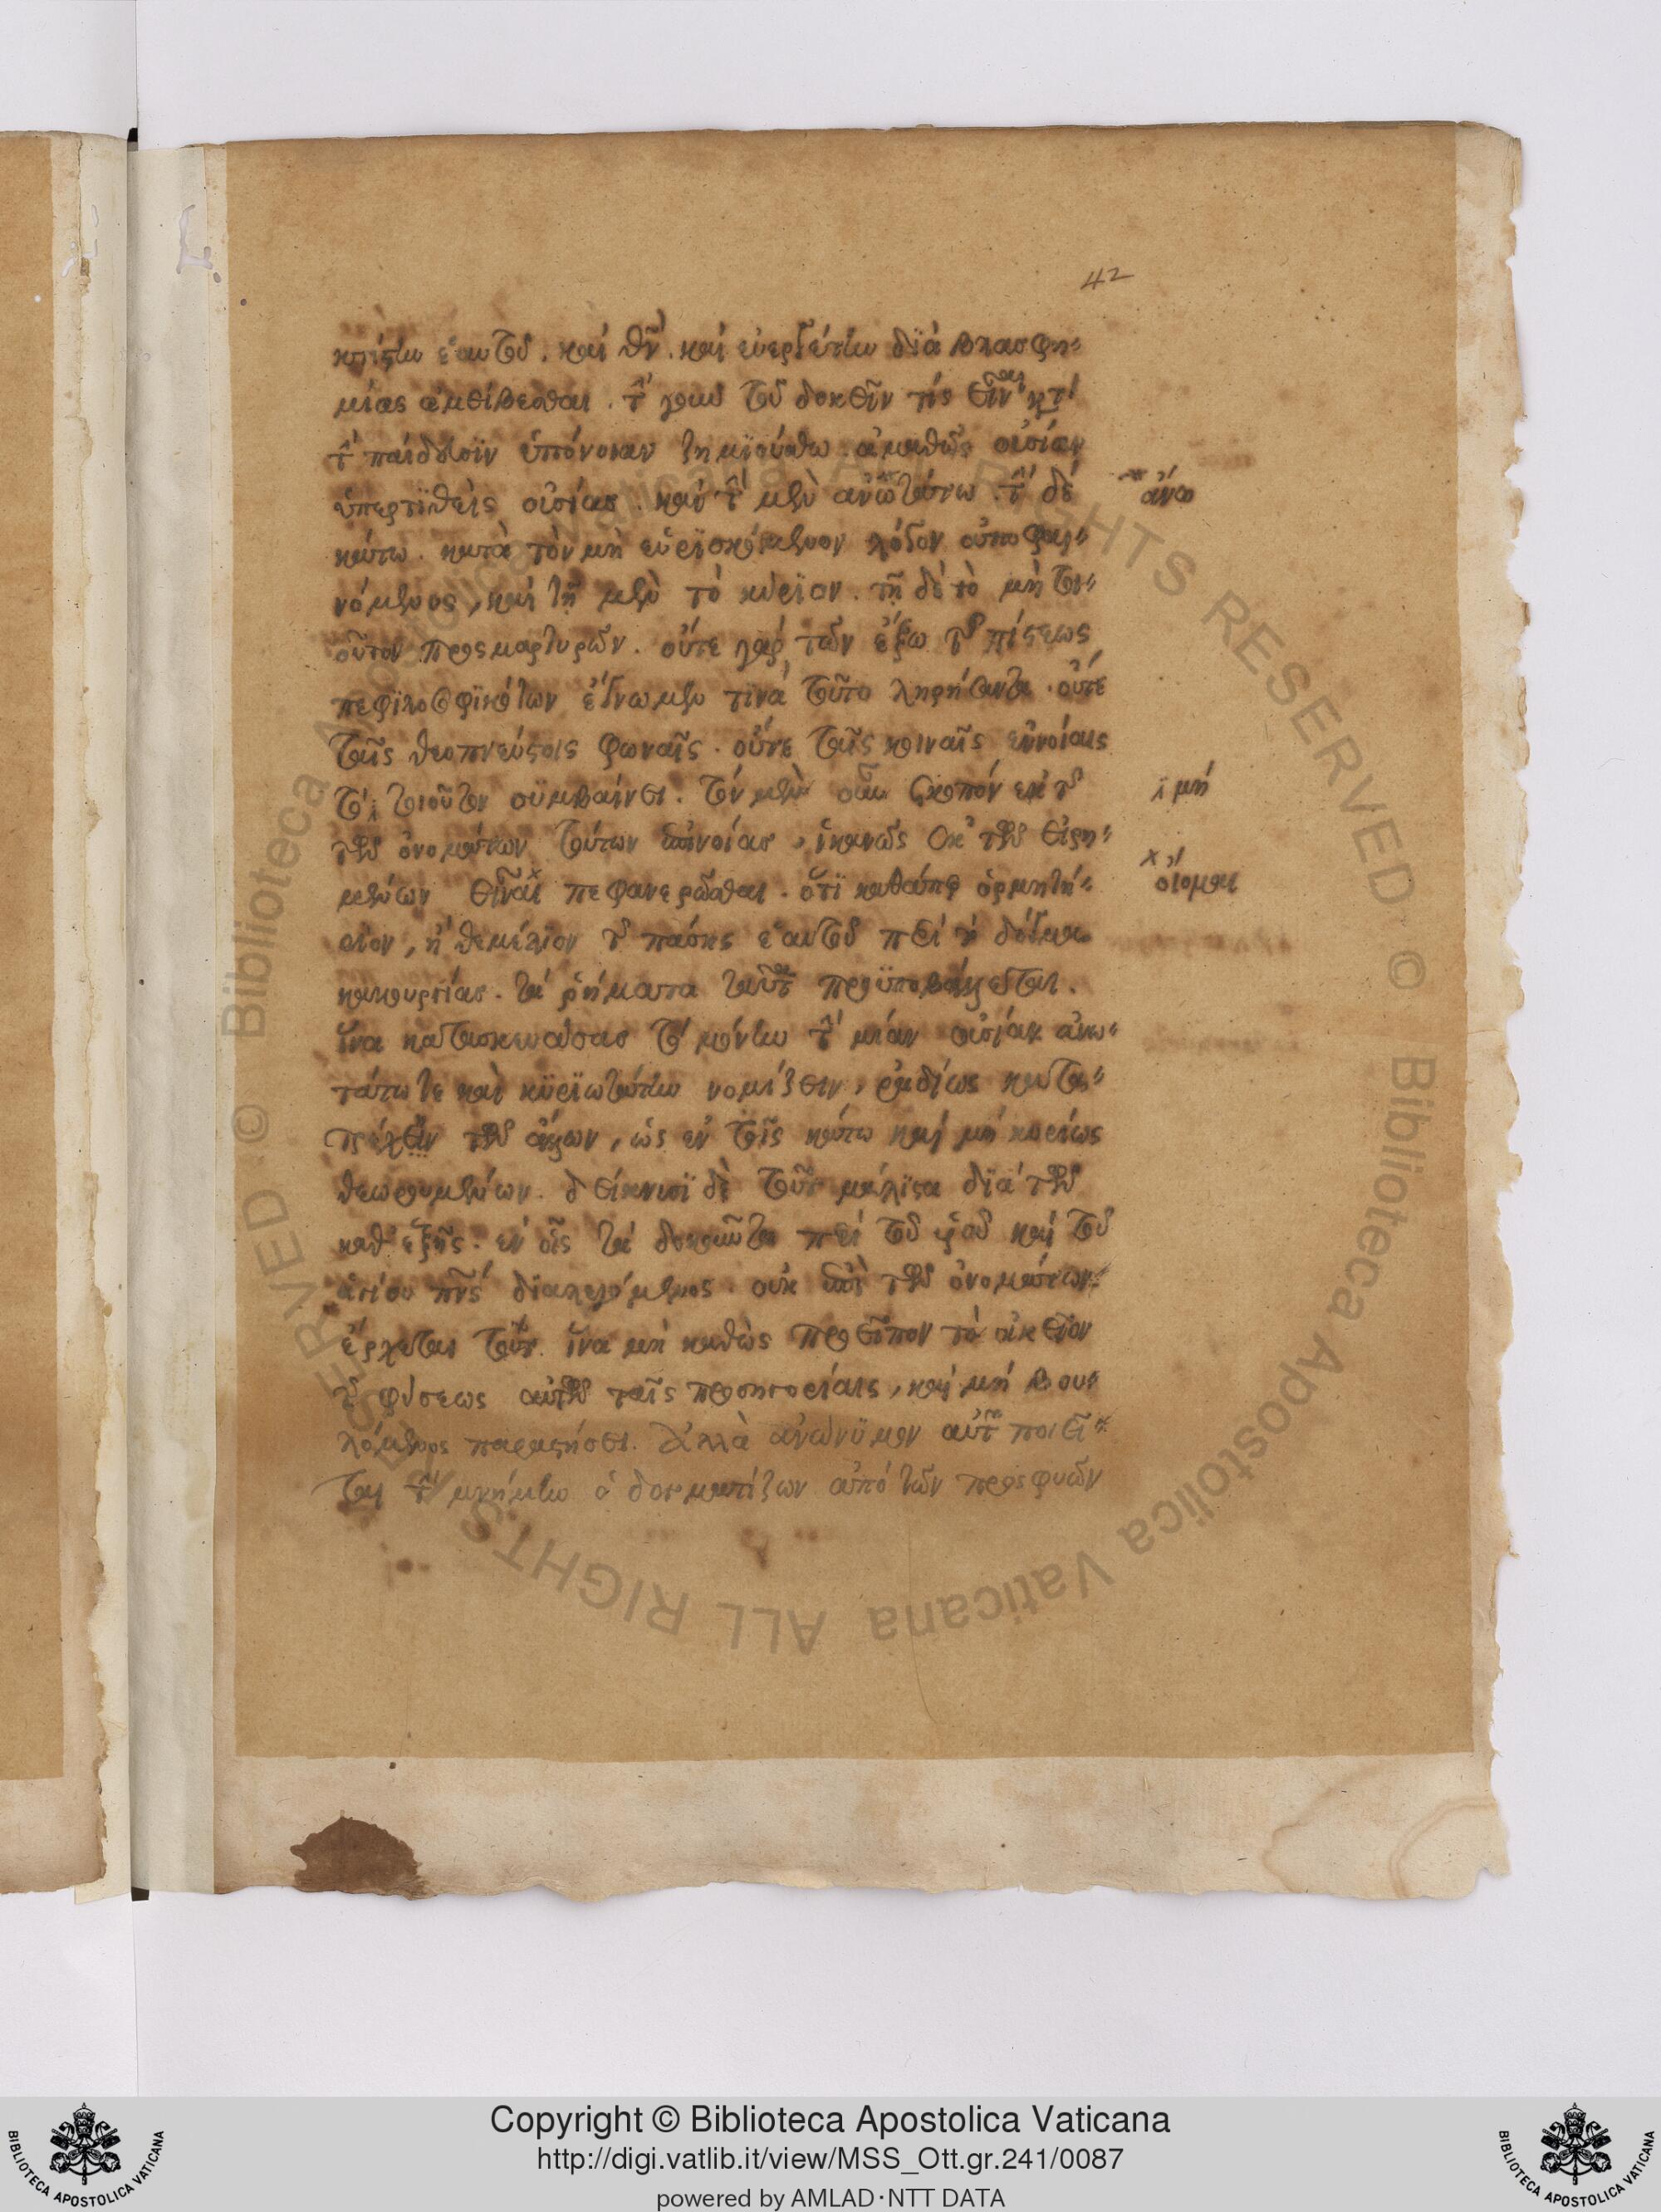 42
κτίστην ἑαυτοῦ. καὶ θν̅. καὶ εὐεργέτην διὰ βλασφη-
μίας ἀμείβεσθαι. τὴν γοῦν τοῦ δοκεῖν τίς εἶναι κτὶ
τὴν παίδευσιν ὑπόνοιαν ζημιούσθω. ἀμαθῶς οὐσίαν
ὑπερτιθεὶς οὐσίας. καὶ τὴν μὲν ἀνωτάτω. τὴν δὲ
ἄνω
κάτω. κατὰ τὸν μὴ εὑρισκόμενον λόγον ἀποφαι-
νόμενος, καὶ τῇ μὲν τὸ κύριον. τῇ δὲ τὸ μὴ τοι-
οῦτον προσμαρτυρῶν. οὔτε γὰρ τῶν ἔξω τῆς πίστεως
πεφιλοσοφικότων ἔγνωμεν τινὰ τοῦτο ληρήσαντα. οὔτε
ταῖς θεοπνεύστοις φωναῖς. οὔτε ταῖς κοιναῖς ἐννοίαις
τὸ τοιοῦτον συμβαίνει. τὸν μὲν οὖν σκοπὸν ἐκ τῆς
μὴ
τῶν ὀνομάτων τούτων ἐπινοίας, ἱκανῶς ἐκ τῶν εἰρη-
μένων εἶναι πεφανερῶσθαι. ὅτι καθάπερ ὁρμητή-
οἴομαι
ριον, ἢ θεμέλιον τῆς πάσης ἑαυτοῦ περὶ τὰ δόγμα
κακουργίας. τὰ ῥήματα ταῦτα προϋποβάλλεται.
ἵνα κατασκευάσας τὸ μόνην τὴν μίαν οὐσίαν ἀνω-
τάτω τε καὶ κυριωτάτην νομίζειν, ῥᾳδίως κατα-
τρέχειν τῶν ἄλλων, ὡς ἐν τοῖς κάτω καὶ μὴ κυρίως
θεωρουμένων. δείκνυσι δὲ τοῦτο μάλιστα διὰ τῶν
καθεξῆς. ἐν οἷς τὰ δοκοῦντα περὶ τοῦ υἱοῦ καὶ τοῦ
ἁγίου πν̅ς διαλεγόμενος. οὐκ ἐπὶ τῶν ὀνομάτων
ἔρχεται τούτων. ἵνα μὴ καθὼς προεῖπον τὸ οἰκεῖον
τῆς φύσεως αὐτῶν ταῖς προσηγορίαις, καὶ μὴ βου-
λόμενος παραστήσει. ἀλλὰ ἀνώνυμον αὐτῶν ποιεῖ-
ται τὴν μνήμην ὁ δογματίζων ἀπὸ τῶν προσφυῶν
Copyright © Biblioteca Apostolica Vaticana
http://digi.vatlib.it/view/MSS_Ott.gr.241/0087
powered by AMLAD·NTT DATA